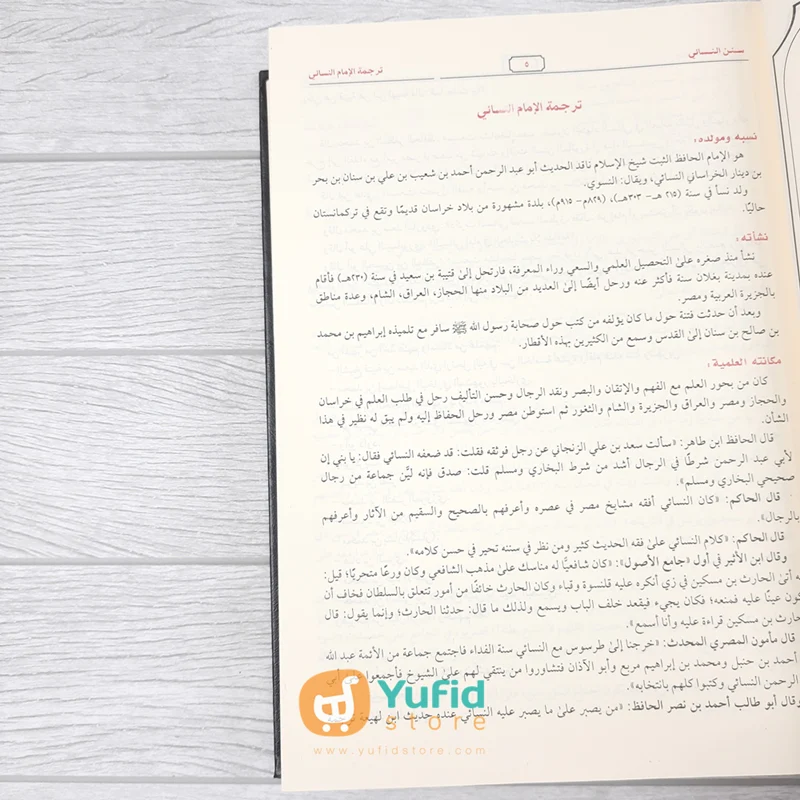 سنن النسائي
٥
ترجمة الإمام النسائي
ترجمة الإمام النسائي
نسبه ومولده:
هو الإمام الحافظ الثبت شيخ الإسلام ناقد الحديث أبو عبد الرحمن أحمد بن شعيب بن علي بن سنان بن بحر
بن دينار الخراساني النسائي، ويقال: النسوي.
ولد نسأ في سنة (٢١٥ هـ - ٣٠٣هـ)، (٨٢٩م - ٩١٥م)، بلدة مشهورة من بلاد خراسان قديمًا وتقع في تركمانستان
حاليًا.
نشأته:
نشأ منذ صغره على التحصيل العلمي والسعي وراء المعرفة، فارتحل إلى قتيبة بن سعيد في سنة (٢٣٠هـ) فأقام
عنده بمدينة بغلان سنة فأكثر عنه ورحل أيضًا إلى العديد من البلاد منها الحجاز، العراق، الشام، وعدة مناطق
بالجزيرة العربية ومصر.
وبعد أن حدثت فتنة حول ما كان يؤلفه من كتب حول صحابة رسول الله ﷺ سافر مع تلميذه إبراهيم بن محمد
بن صالح بن سنان إلى القدس وسمع من الكثيرين بهذه الأقطار.
مكانته العلمية:
كان من بحور العلم مع الفهم والإتقان والبصر ونقد الرجال وحسن التأليف رحل في طلب العلم في خراسان
والحجاز ومصر والعراق والجزيرة والشام والثغور ثم استوطن مصر ورحل الحفاظ إليه ولم يبق له نظير في هذا
الشأن.
قال الحافظ ابن طاهر: «سألت سعد بن علي الزنجاني عن رجل فوثقه فقلت: قد ضعفه النسائي فقال: يا بني إن
لأبي عبد الرحمن شرطًا في الرجال أشد من شرط البخاري ومسلم قلت: صدق فإنه ليَّن جماعة من رجال
صحيحي البخاري ومسلم».
قال الحاكم: «كان النسائي أفقه مشايخ مصر في عصره وأعرفهم بالصحيح والسقيم من الآثار وأعرفهم
بالرجال».
قال الحاكم: «كلام النسائي على فقه الحديث كثير ومن نظر في سننه تحير في حسن كلامه».
وقال ابن الأثير في أول «جامع الأصول»: «كان شافعيًّا له مناسك على مذهب الشافعي وكان ورعًا متحريًا؛ قيل:
أتى الحارث بن مسكين في زي أنكره عليه قلنسوة وقباء وكان الحارث خائفًا من أمور تتعلق بالسلطان فخاف أن
عينًا عليه فمنعه؛ فكان يجيء فيقعد خلف الباب ويسمع ولذلك ما قال: حدثنا الحارث؛ وإنما يقول: قال
بن مسكين قراءة عليه وأنا أسمع».
قال مأمون المصري المحدث: «خرجنا إلى طرسوس مع النسائي سنة الفداء فاجتمع جماعة من الأئمة عبد الله
أحمد بن حنبل ومحمد بن إبراهيم مربع وأبو الآذان فتشاوروا من ينتقي لهم على الشيوخ فأجمعوا أبي
الرحمن النسائي وكتبوا كلهم بانتخابه».
وقال أبو طالب أحمد بن نصر الحافظ: «من يصبر على ما يصبر عليه النسائي عنده حديث ابن لهيعة
Yufid
store
www.yufidstore.com